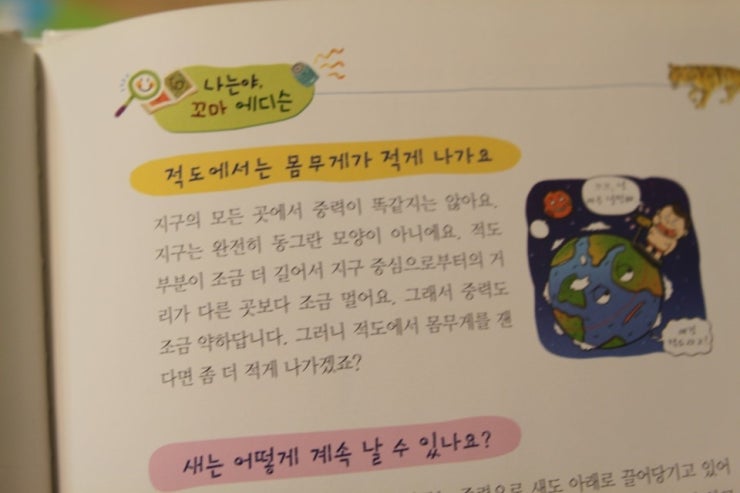 나는야,
꼬마 에디슨
적도에서는 몸무게가 적게 나가요
지구의 모든 곳에서 중력이 똑같지는 않아요.
지구는 완전히 동그란 모양이 아니에요. 적도
부분이 조금 더 길어서 지구 중심으로부터의 거
리가 다른 곳보다 조금 멀어요. 그래서 중력도
조금 약하답니다. 그러니 적도에서 몸무게를 잰
다면 좀 더 적게 나가겠죠?
새는 어떻게 계속 날 수 있나요?
새도 아래로 끌어당기고 있어